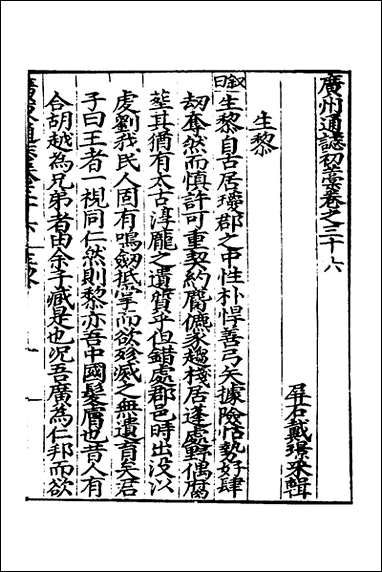 廣州通誌初藁卷之三十六
屏石戴璟采輯
生黎
叙曰生黎自古居瓊郡之中性朴悍善弓矢據險怙勢好肆
刼奪然而慎許可重契約屩僬家趨棧居蓬處野偶腐
葢其猶有太古淳龎之遺質乎但錯處郡邑時出没以
虔劉我民人固有鳴劔抵掌而欲殄滅之無遺育矣君
子曰王者一視同仁然則黎亦吾中國髮膚也昔人有
合胡越為兄弟者由余子臧是也况吾廣為仁邦而欲